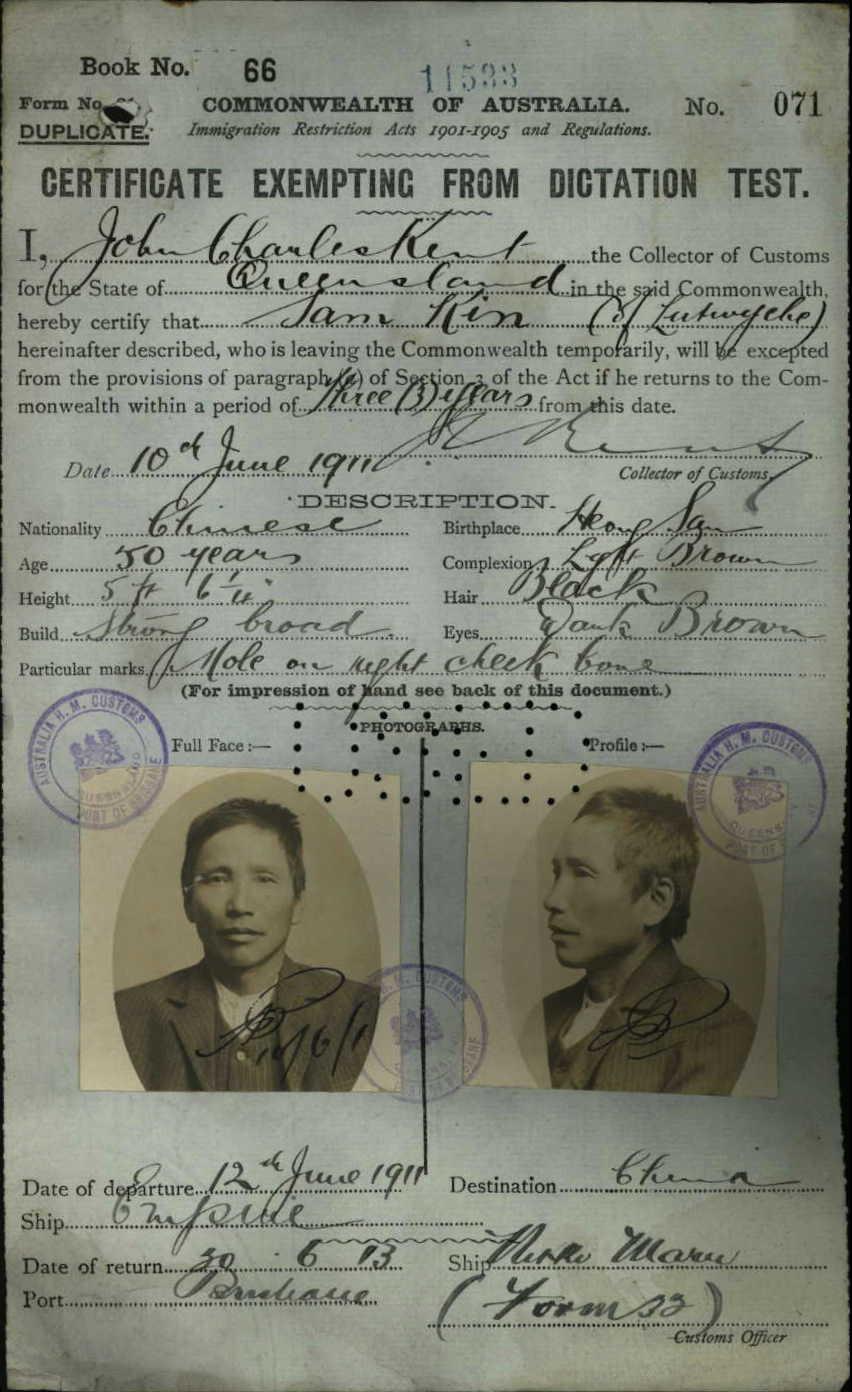 Book No. 66
11533
Form No.
COMMONWEALTH OF AUSTRALIA.
No. 071
DUPLICATE.
Immigration Restriction Acts 1901-1905 and Regulations.
CERTIFICATE EXEMPTING FROM DICTATION TEST.
I, John Charles Kent the Collector of Customs
for the State of Queensland in the said Commonwealth,
hereby certify that Sam Kin (of Lutwyche)
hereinafter described, who is leaving the Commonwealth temporarily, will be excepted
from the provisions of paragraph (a) of Section 3 of the Act if he returns to the Com-
monwealth within a period of Three (3) years from this date.
Date 10th June 1911
Collector of Customs.
DESCRIPTION.
Nationality Chinese Birthplace Heong San
Age 50 years Complexion Light Brown
Height 5 ft 6 1/4" Hair Black
Build Strong broad Eyes Dark Brown
Particular marks Mole on right cheek bone
(For impression of hand see back of this document.)
PHOTOGRAPHS.
Full Face :— Profile :—
AUSTRALIA H. M. CUSTOMS
QUEENSLAND
PORT OF BRISBANE
AUSTRALIA H. M. CUSTOMS
QUEENS
PORT OF
10/6/11
H. M. CUSTOMS
Date of departure 12th June 1911 Destination China
Ship Empire
Date of return 30 6 13 Ship Maru
Port Brisbane
(Form 32)
Customs Officer